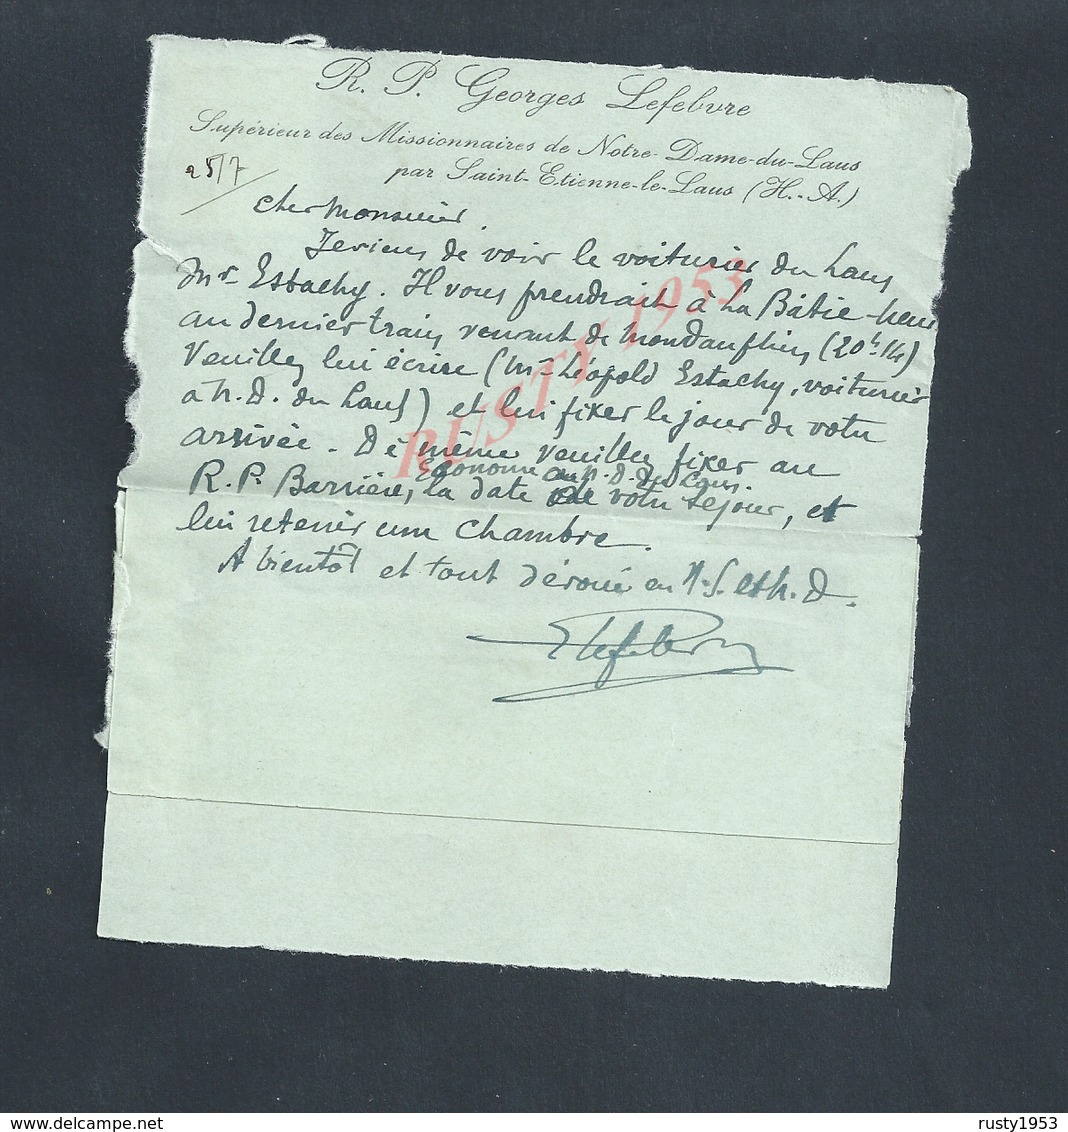 R. P. Georges Lefebvre
Supérieur des Missionnaires de Notre-Dame-du-Laus
par Saint-Etienne-le-Laus (H.-A.)
25/7
Cher Monsieur,
Je viens de voir le voiturier du Laus
Mr Estachy. Il vous prendrait à La Bâtie-Neuve
au dernier train venant de Mondauphin (20h14)
Veuillez lui écrire (Mr Léopold Estachy, voiturier
à N. D. du Laus) et lui fixer le jour de votre
arrivée. De même veuillez fixer au
Econome à N.D. du Laus.
R. P. Barrière, la date de votre séjour, et
lui retenir une chambre.
A bientôt et tout dévoué en N.S. et N.D.
Lefebvre
RUSTY 1953
rusty1953